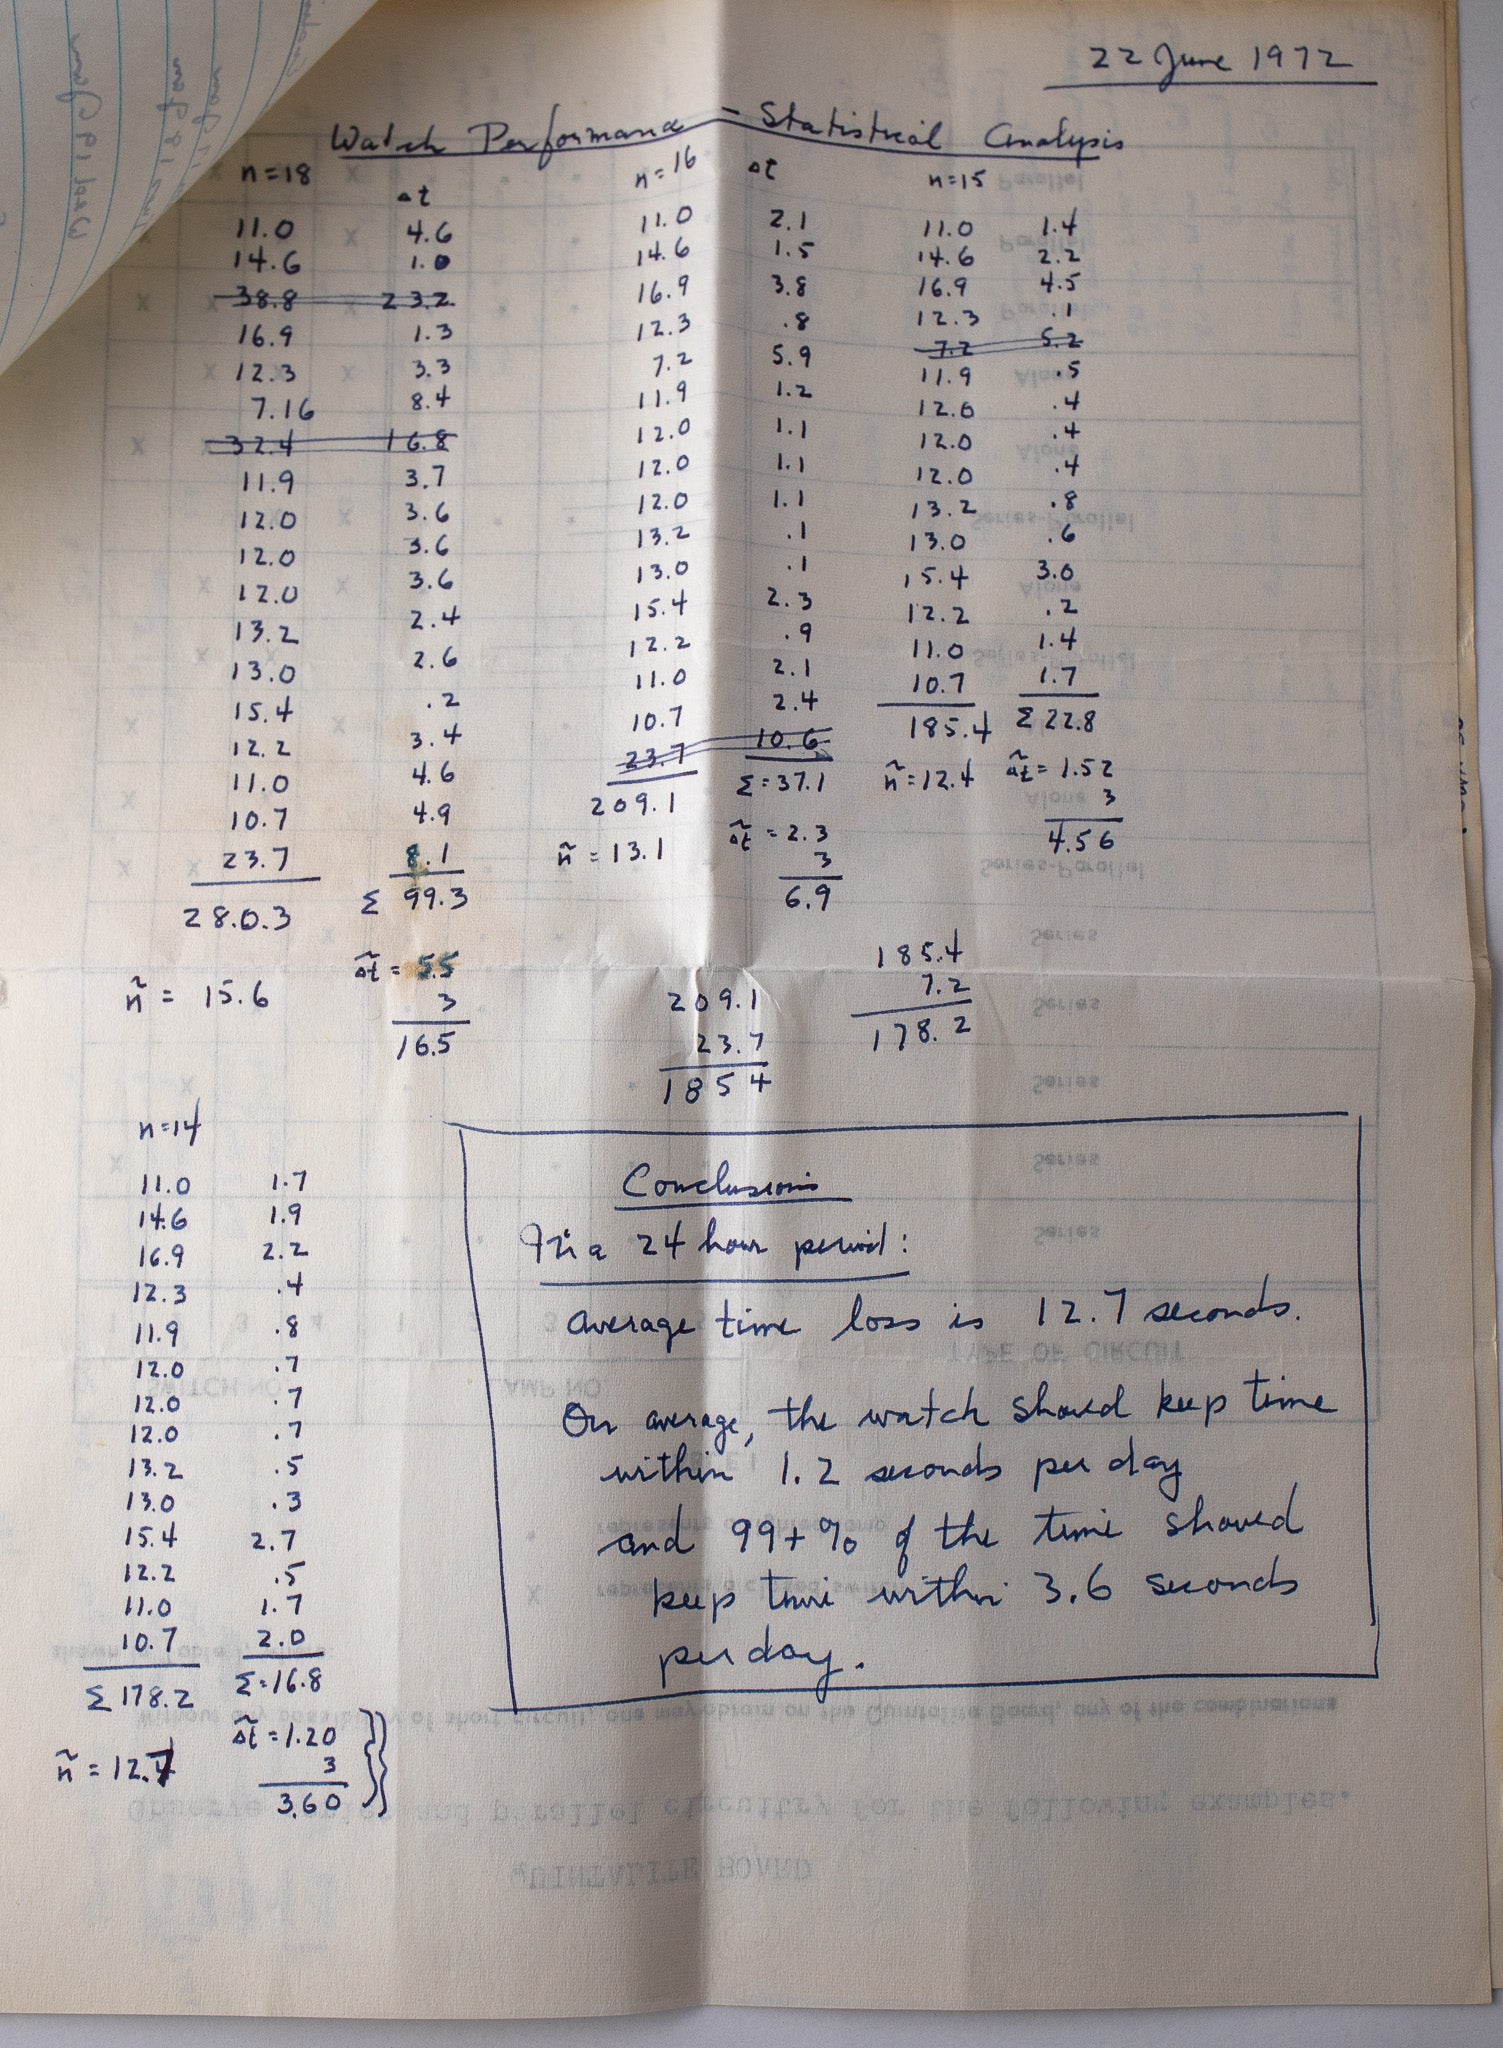 22 June 1972
Watch Performance - Statistical Analysis
n=18
Δt
11.0 4.6
14.6 1.0
38.8 23.2
16.9 1.3
12.3 3.3
7.16 8.4
32.4 16.8
11.9 3.7
12.0 3.6
12.0 3.6
12.0 3.6
13.2 2.4
13.0 2.6
15.4 .2
12.2 3.4
11.0 4.6
10.7 4.9
23.7 8.1
280.3 Σ 99.3
ñ = 15.6
Δt = 5.5
3
16.5
n=16 Δt
11.0 2.1
14.6 1.5
16.9 3.8
12.3 .8
7.2 5.9
11.9 1.2
12.0 1.1
12.0 1.1
12.0 1.1
13.2 .1
13.0 .1
15.4 2.3
12.2 .9
11.0 2.1
10.7 2.4
23.7 10.6
209.1 Σ=37.1
ñ = 13.1
Δt = 2.3
3
6.9
n=15
11.0 1.4
14.6 2.2
16.9 4.5
12.3 .1
7.2 5.2
11.9 .5
12.0 .4
12.0 .4
12.0 .4
13.2 .8
13.0 .6
15.4 3.0
12.2 .2
11.0 1.4
10.7 1.7
185.4 Σ 22.8
ñ=12.4 Δt=1.52
3
4.56
209.1
23.7
1854
185.4
7.2
178.2
n=14
11.0 1.7
14.6 1.9
16.9 2.2
12.3 .4
11.9 .8
12.0 .7
12.0 .7
12.0 .7
13.2 .5
13.0 .3
15.4 2.7
12.2 .5
11.0 1.7
10.7 2.0
Σ 178.2 Σ=16.8
ñ = 12.7
Δt=1.20
3
3.60
Conclusions
In a 24 hour period:
average time loss is 12.7 seconds.
On average, the watch should keep time
within 1.2 seconds per day
and 99+% of the time should
keep time within 3.6 seconds
per day.